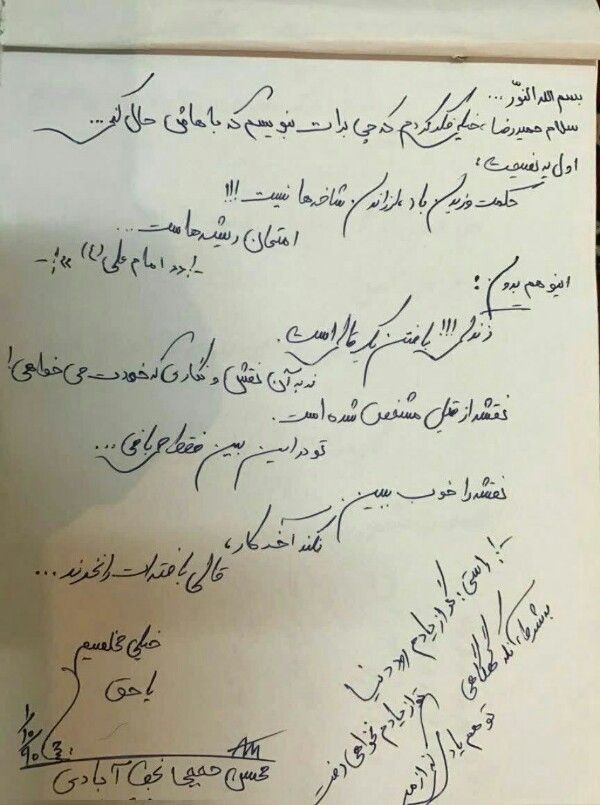 بسم الله النّور...
سلام حمیدرضا، خیلی فکر کردم که چی برات بنویسم که باهاش حال کنی...
اول یه نصیحت:
حکمت وزیدن باد، لرزاندن شاخه‌ها نیست!!!
امتحان ریشه‌هاست...
-!«« امام علی (ع) »»!-
اینو هم بدون:
زندگی!!! بافتن یک قالی است.
نه به آن نقش و نگاری که خودت می خواهی!
نقشه از قبل مشخص شده است.
تو در این بین فقط می بافی...
نقشه را خوب ببین
نکند آخر کار،
قالی بافته ات را نخرند...
-!راستی؛ گر از یادم رود دنیا
تو از یادم نخواهی رفت
به شرط آنکه گهگاهی
تو هم یادی کنی از من
خیلی مخلصیم
یا حق
محسن حججی نجف آبادی